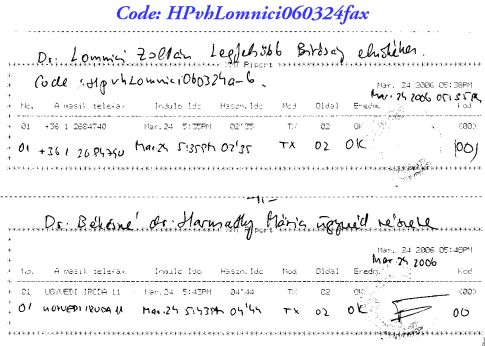 Code: HPvhLomnici060324fax
Dr. Lomnici Zoltán Legfelsőbb Bíróság elnökéhez.
Code : Hpvhlomnici060324a-6.
Mar. 24 2006 05:38PM
Mar. 24 2006 05:35PM
No. A masik telefax Indulo Ido Haszn.Ido Mod Oldal Eredm. Kod
01 +36 1 2684740 Mar.24 5:35PM 02'35 TX 02 OK (00)
01 +36 1 2684740 Mar.24 5:35PM 02'35 TX 02 OK (00)
-"-
Dr. Békésné dr. Harmathy Mária ügyvéd részére
Mar. 24 2006 05:48PM
Mar 24 2006
No. A masik telefax Indulo Ido Haszn.Ido Mod Oldal Eredm. Kod
01 UGYVEDI IRODA 11 Mar.24 5:43PM 04'44 TX 02 OK (00)
01 UGYVEDI IRODA 11 Mar.24 5:43PM 04'44 TX 02 OK 00